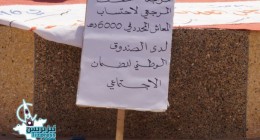 المرجعي لاحتساب
المعاش المحدد في 6000 درهم
لدى الصندوق
الوطني للضمان
الاجتماعي